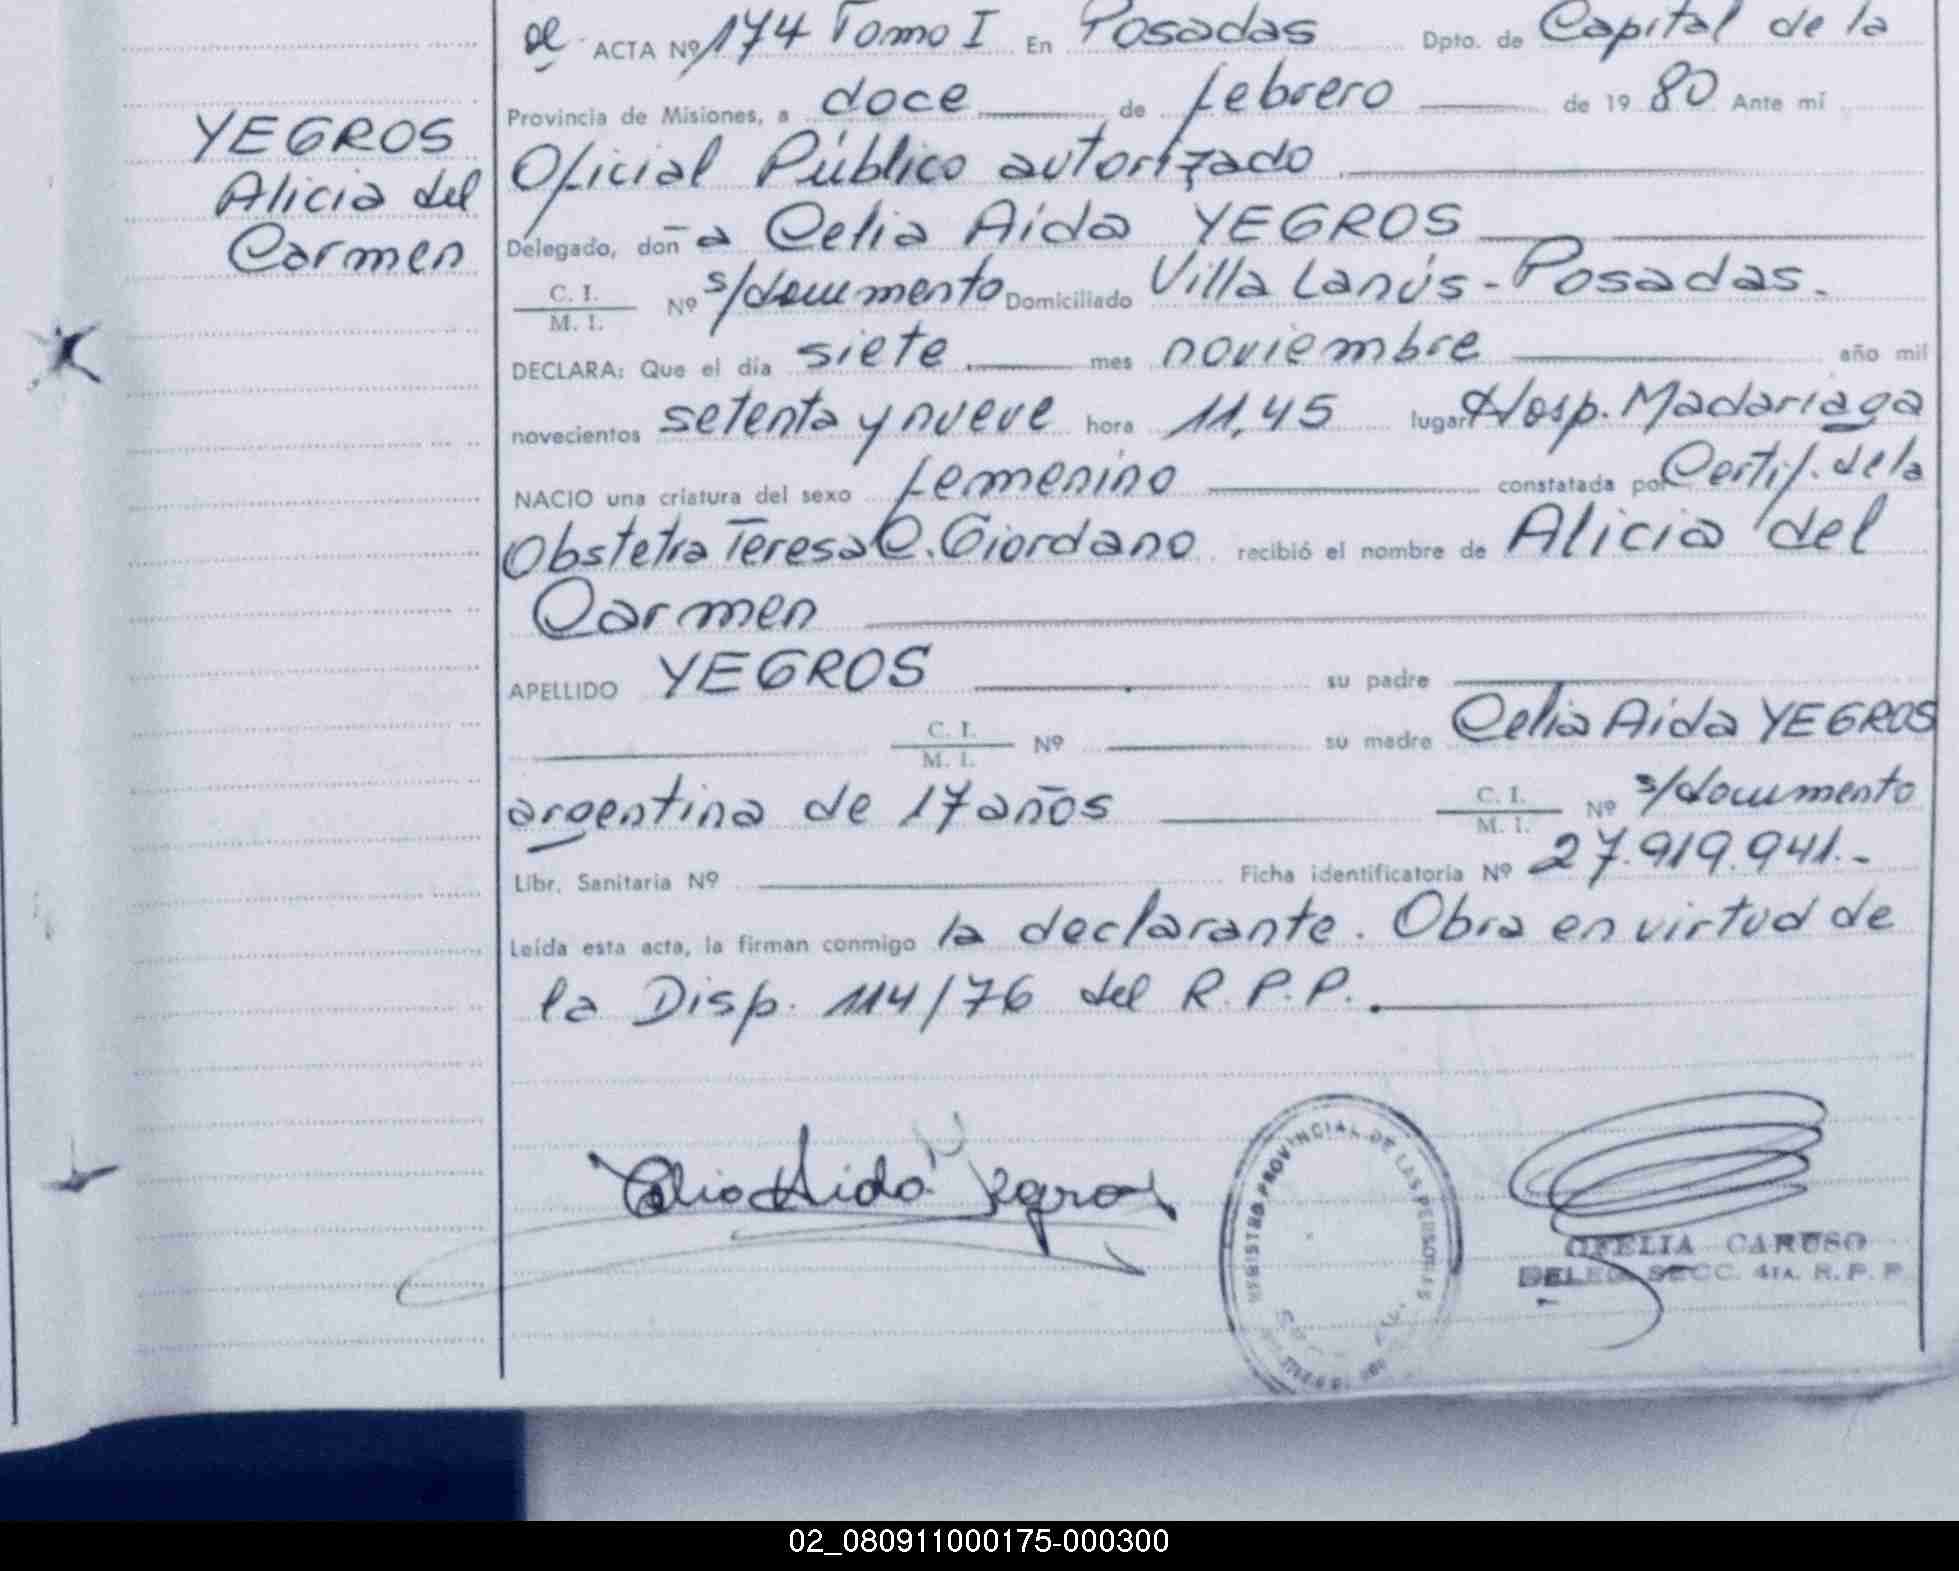 YEGROS
Alicia del
Carmen
ACTA Nº 174 Tomo I En Posadas Dpto. de Capital de la
Provincia de Misiones, a doce de febrero de 1980 Ante mí
Oficial Público autorizado
Delegado, doña Celia Aida YEGROS
C. I.
M. I. Nº s/documento Domiciliado Villa Lanús - Posadas.
DECLARA: Que el día siete mes noviembre año mil
novecientos setenta y nueve hora 11,45 lugar Hosp. Madariaga
NACIO una criatura del sexo femenino constatada por Certif. de la
Obstetra Teresa C. Giordano recibió el nombre de Alicia del
Carmen
APELLIDO YEGROS su padre
C. I.
M. I. Nº su madre Celia Aida YEGROS
argentina de 17 años C. I.
M. I. Nº s/documento
Libr. Sanitaria Nº Ficha identificatoria Nº 27.919.941.-
Leída esta acta, la firman conmigo la declarante. Obra en virtud de
la Disp. 114/76 del R.P.P.
Celia Aida Yegros
REGISTRO PROVINCIAL DE LAS PERSONAS
OFELIA CARUSO
DELEG. SECC. 4TA. R. P. P.
02_080911000175-000300